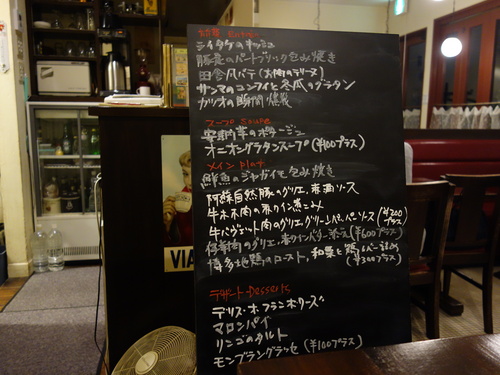 前菜 Entrée
シイタケのキッシュ
豚足のパートブリック包み焼き
田舎風パテ(お肉のテリーヌ)
サンマのコンフィと冬瓜のグラタン
カツオの瞬間燻製
スープ Soupe
安納芋のポタージュ
オニオングラタンスープ(¥100プラス)
メイン Plat
鮮魚のジャガイモ包み焼き
阿蘇自然豚のグリエ、ソース
牛ホホ肉の赤ワイン煮こみ
牛バヴェット肉のグリエ、グリーンペッパーソース(¥200プラス)
仔羊肉のグリエ、赤ワインバター添え(¥600プラス)
博多地鶏のロースト、和栗と詰め(¥300プラス)
デザート Desserts
デリス・オ・フランボワーズ
マロンパイ
リンゴのタルト
モンブラングラッセ(¥100プラス)
VIA